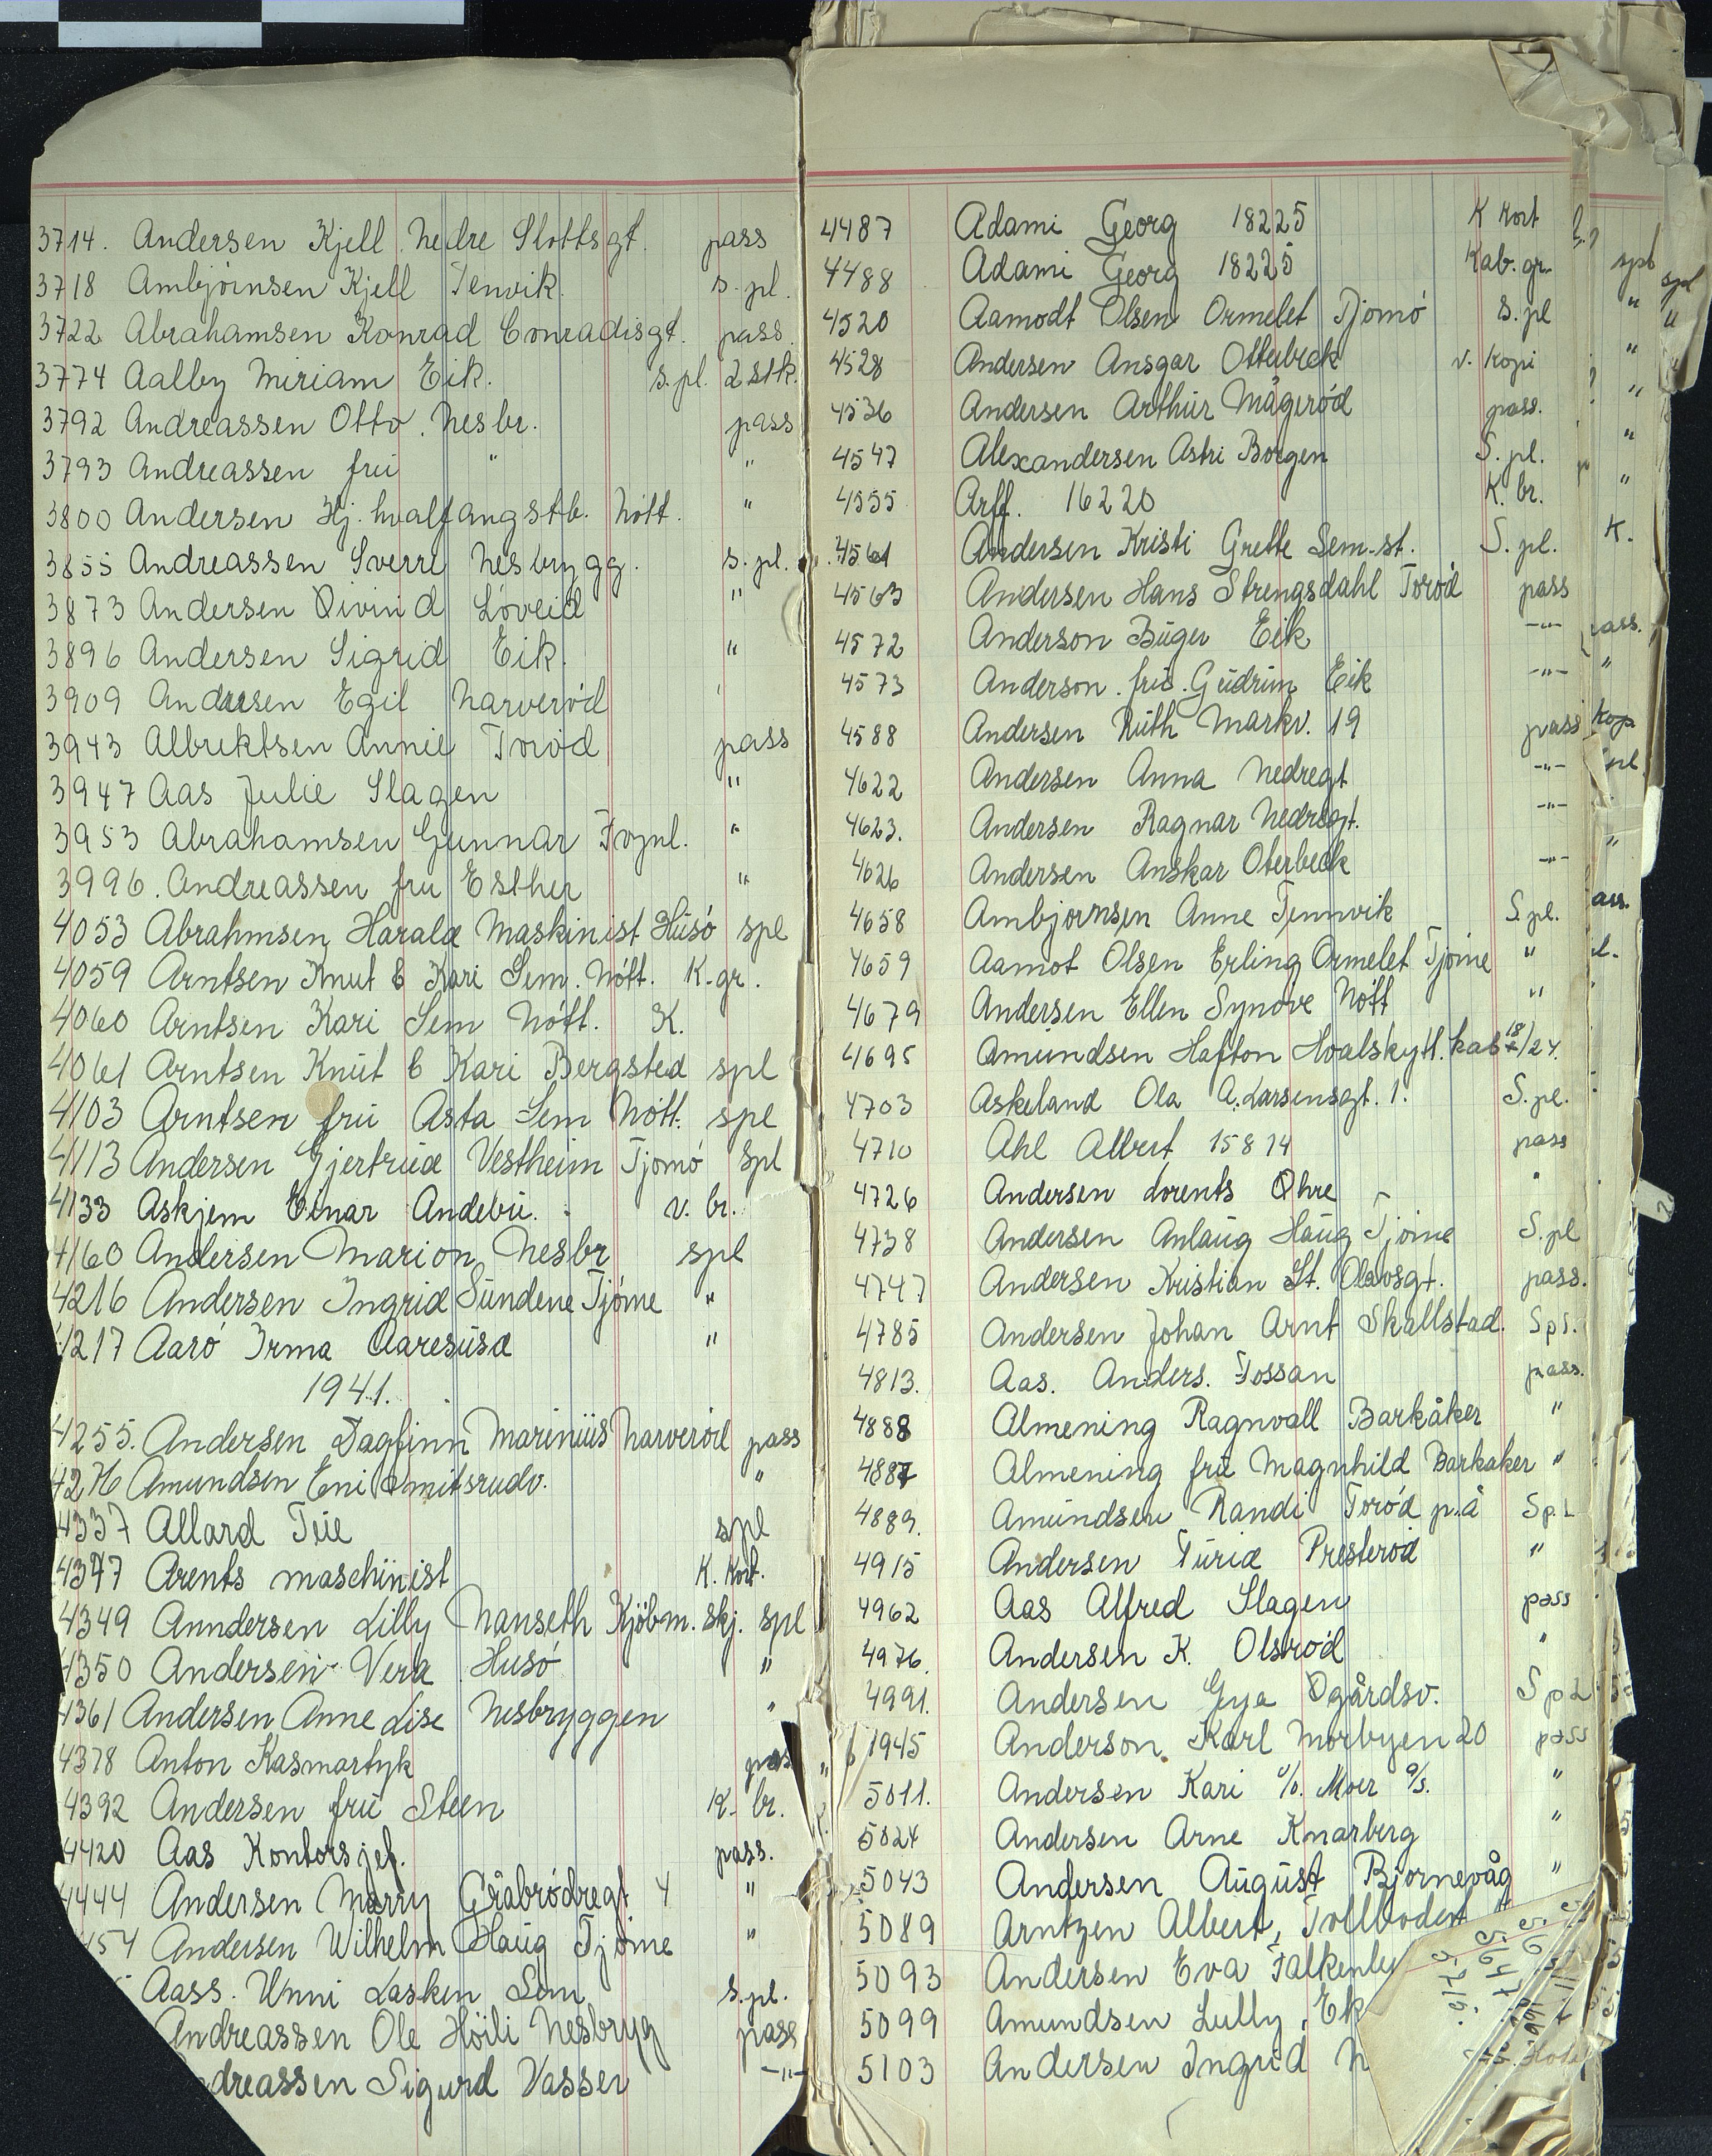 3714. Andersen Kjell Nedre Slottsgt. pass
3718 Ambjörnsen Kjell Tenvik. s. pl.
3722 Abrahamsen Konrad Conradisgt. pass
3774 Aalby Miriam Eik. s. pl. 2 stk.
3792 Andreassen Otto. Nesbr. pass
3793 Andreassen frú " "
3800 Andersen Hj. hvalfangstb. Nött. "
3855 Andreassen Sverre Nesbrygg. s. pl.
3873 Andersen Öivind Löveid "
3896 Andersen Sigrid Eik. "
3909 Andersen Egil Narveröd "
3943 Albrektsen Annie Toröd pass
3947 Aas Julie Slagen "
3953 Abrahamsen Gunnar "
3996. Andreassen fru Esther "
4053 Abrahmsen Harald Maskinist Húsö spl
4059 Arntsen Knut & Kari Sem. Nött. K-gr.
4060 Arntsen Kari Sem Nött. K.
4061 Arntsen Knút & Kari Bergsted spl
4103 Arntsen frú Asta Sem Nött. spl
4113 Andersen Gjertrúd Vestheim Tjömö Spl
4133 Askjem Einar Andebú. v. br.
4160 Andersen Marion Nesbr spl
4216 Andersen Ingrid Súndene Tjöme "
4217 Aarö Irma Aaresúsd "
1941.
4255. Andersen Dagfinn Mariniús Narveröd pass
4276 Amundsen Eni Smitsrudv. "
4337 Allard Teie spl
4347 Arents maschinist K. Kort.
4349 Anndersen Lilly Nanseth Kjöbm. skj. spl
4350 Andersen Vera Husö "
4361 Andersen Anne Lise Nesbryggen "
4378 Anton Kasmartyk pass
4392 Andersen frú Steen K- br.
4420 Aas Kontorsjef. pass.
4444 Andersen Marry Gråbrödregt 4 "
454 Andersen Wilhelm Haúg Tjöme "
Aass. Unni Lasken Sem s. pl.
Andreassen Ole Höili Nesbryg pass
dreassen Sigurd Vasser -"-
4487 Adami Georg 18225 K Kort
4488 Adami Georg 18225 Kab. gr.
4520 Aamodt Olsen Ormelet Tjömö s. pl
4528 Andersen Ansgar Otterbeck v. kopi
4536 Andersen Arthúr Mågeröd pass.
4547 Alexandersen Astri Borgen S. pl.
4555 Arff. 16220 K. br.
4561 Andersen Kristi Grette Sem-st. S. pl.
4563 Andersen Hans Strengsdahl Toröd pass
4572 Anderson Birger Eik -"-
4573 Anderson. frú. Gúdrún Eik -"-
4588 Andersen Rúth Markv. 19 pass
4622 Andersen Anna Nedregt -"-
4623. Andersen Ragnar Nedregt. -"-
4626 Andersen Anskar Oterbeck -"-
4658 Ambjörnsen Anne Tennvik S. pl.
4659 Aamot Olsen Erling Ormelet Tjöme "
4679 Andersen Ellen Synöve Nött "
4695 Amúndsen Hafton Hvalskytt. kab 18/24.
4703 Askeland Ola A. Larsensgt. 1. S. pl.
4710 Ahl Albert 15814 pass
4726 Andersen Lorents Öhre "
4738 Andersen Anlaúg Haúg Tjöme S. pl
4747 Andersen Kristian St. Olavsgt. pass.
4785 Andersen Johan Arnt Skallstad. Spl.
4813. Aas. Anders. Fossan pass.
4888 Almening Ragnvall Barkåker "
4887 Almening frú Magnhild Barkaker "
4889. Amúndsen Randi Toröd p.å Sp. L
4915 Andersen Túrid Presteröd "
4962 Aas Alfred Slagen pass
4976. Andersen K. Olsröd "
4991. Andersen Gya Ögårdsv. SpL
1945 Anderson. Karl Morbyen 20 pass
5011. Andersen Kari c/o. Moer a/s. "
5024 Andersen Arne Knarberg "
5043 Andersen Aúgúst Bjornevåg "
5089 Arntzen Albert, Tollboden
5093 Andersen Eva Falkenbe
5099 Amundsen Lully, Ek
5103 Andersen Ingrid N